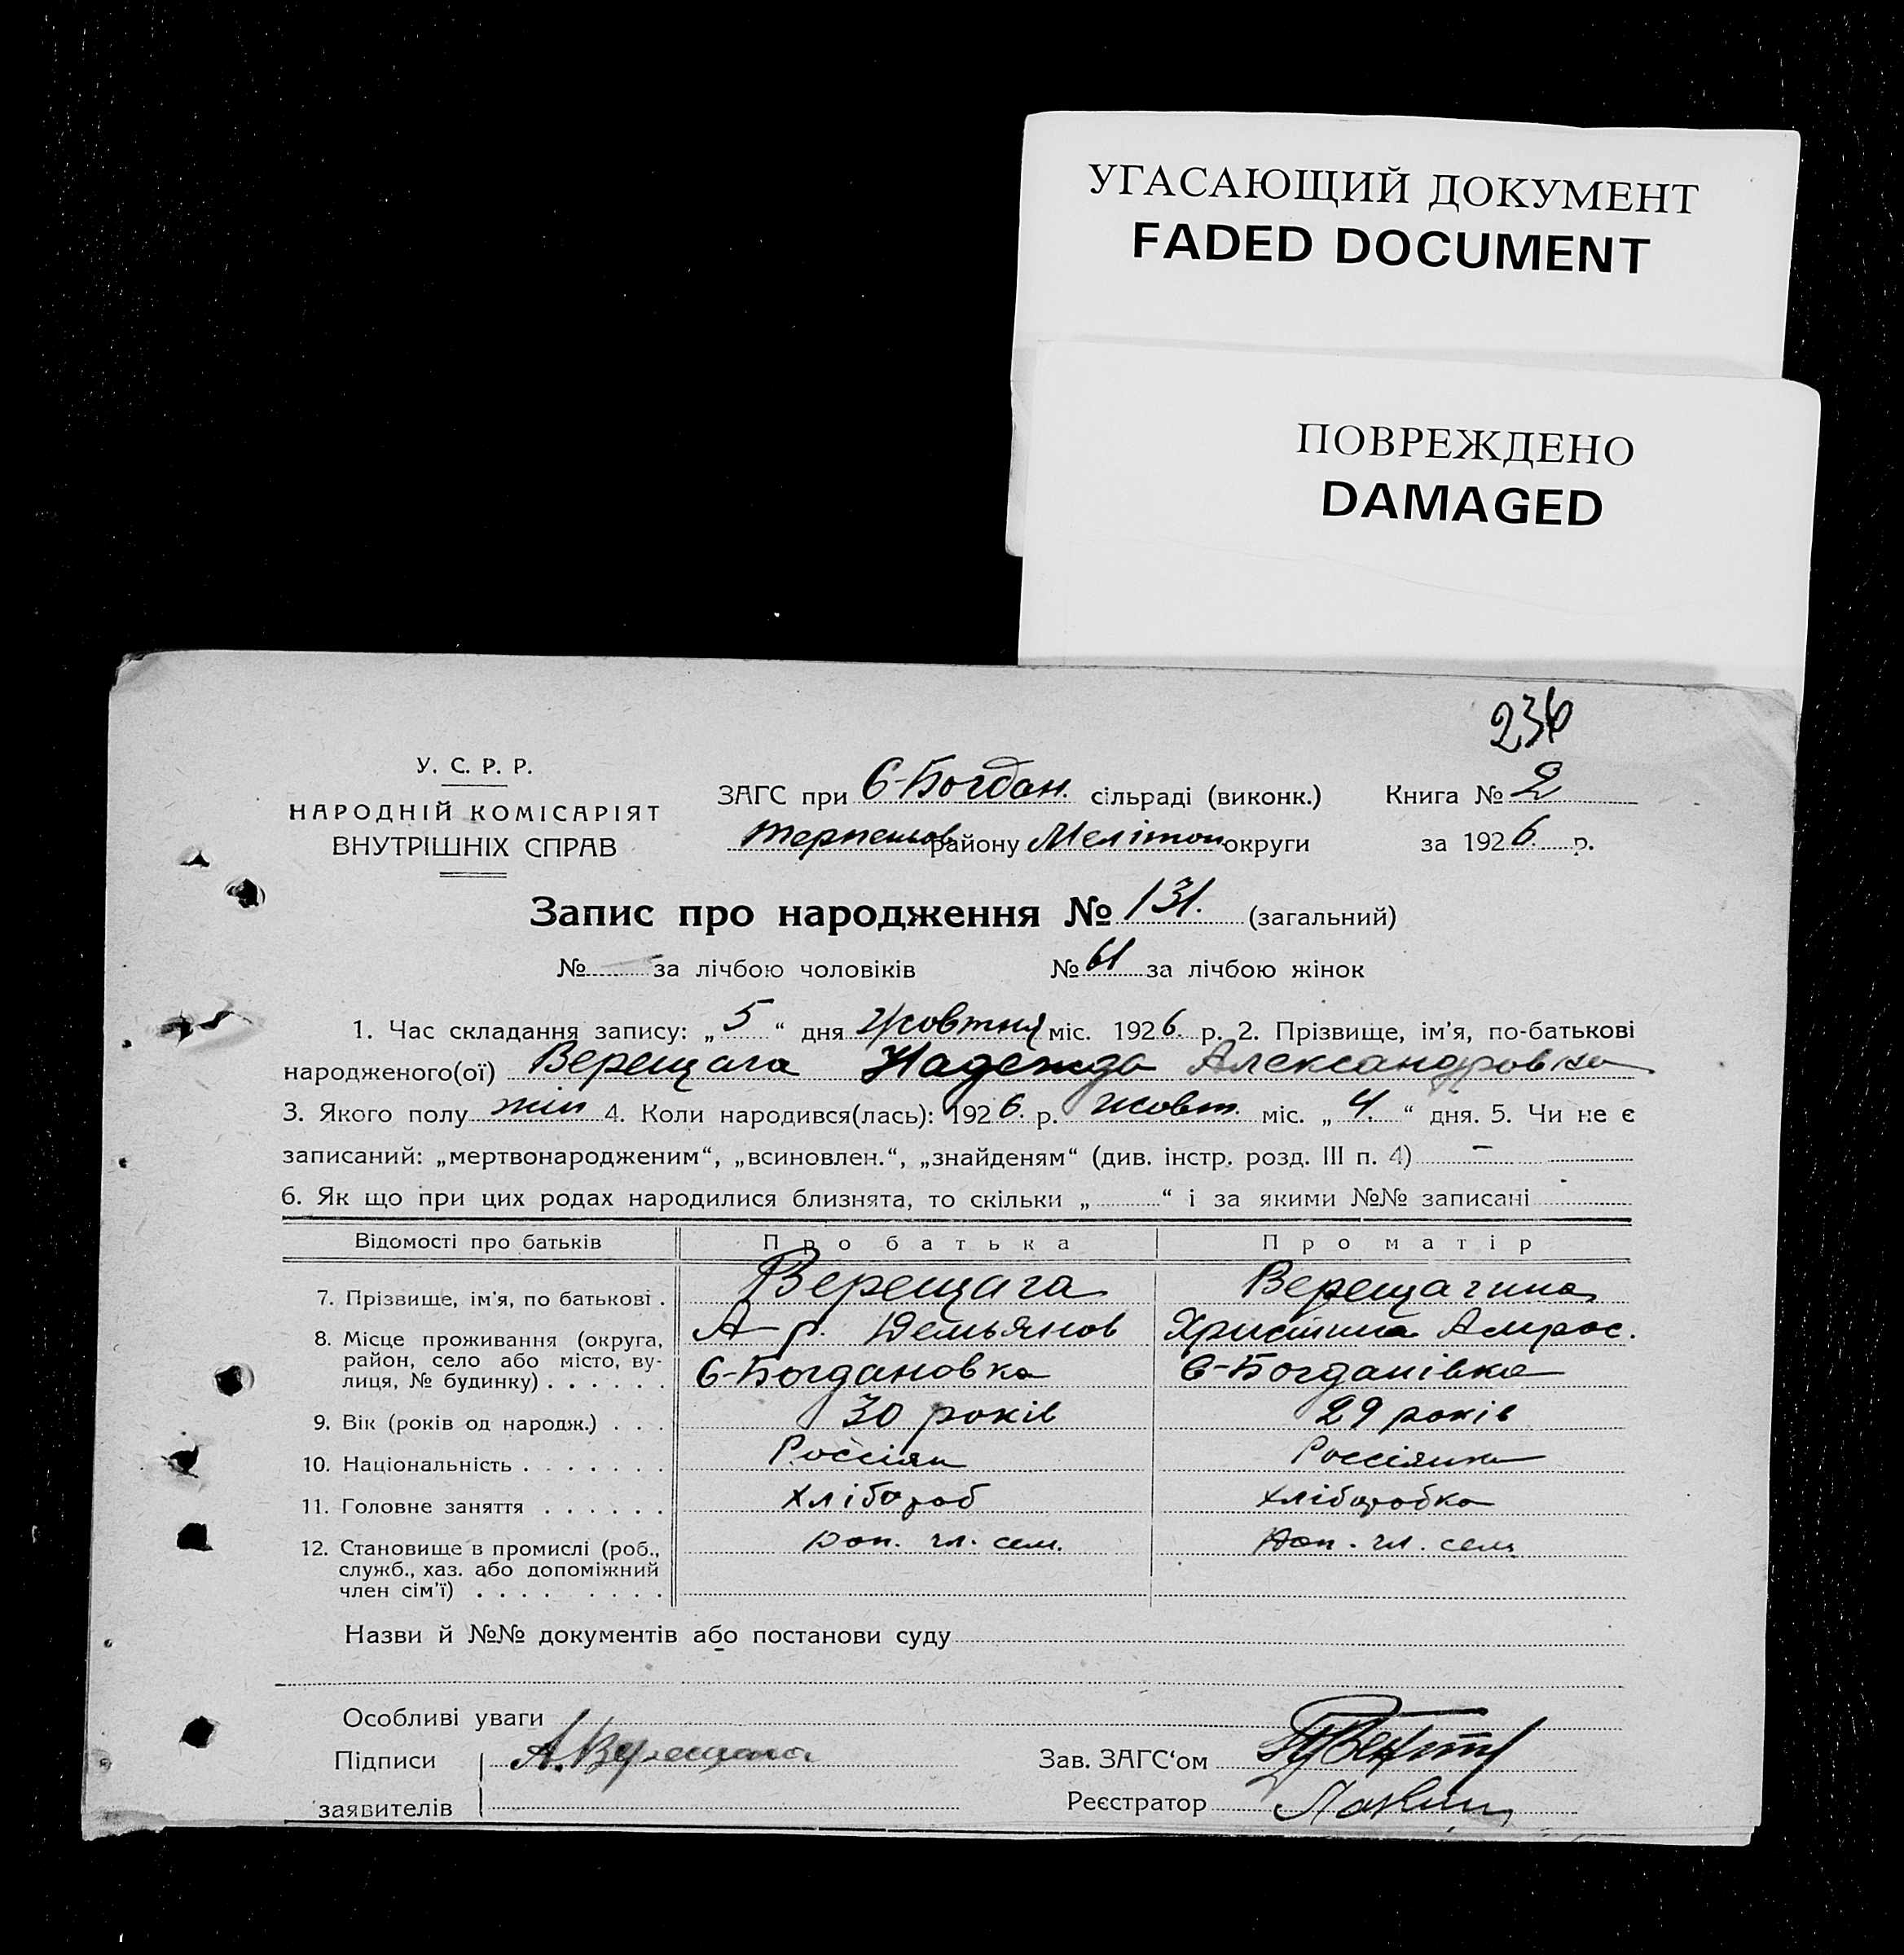 УГАСАЮЩИЙ ДОКУМЕНТ
FADED DOCUMENT
ПОВРЕЖДЕНО
DAMAGED
236
У. С. Р. Р.
НАРОДНІЙ КОМІСАРІЯТ
ВНУТРІШНІХ СПРАВ
ЗАГС при Є-Богдан. сільраді (виконк.) Книга № 2
району Мелітоп округи за 1926 р.
Запис про народження № 131. (загальний)
№ за лічбою чоловіків № 61 за лічбою жінок
1. Час складання запису: „5“ дня жовтня міс. 1926 р. 2. Прізвище, ім'я, по-батькові
народженого(ої) Верещага Надежда Александровна
3. Якого полу жін 4. Коли народився(лась): 1926 р. жовт. міс. „4.“ дня. 5. Чи не є
записаний: „мертвонародженим“, „всиновлен.“, „знайденям“ (див. інстр. розд. III п. 4) –
6. Як що при цих родах народилися близнята, то скільки „ “ і за якими №№ записані
Відомості про батьків Про батька Про матір
7. Прізвище, ім'я, по батькові . Верещага Верещагина
А-р. Демьянов Христина Амрос.
8. Місце проживання (округа,
район, село або місто, ву-
лиця, № будинку) . . . . . . Є-Богдановка Є-Богданівка
9. Вік (років од народж.) . . . 30 років 29 років
10. Національність . . . . . . . Россіян Россіянка
11. Головне заняття . . . . . . Хлібороб Хліборобка
12. Становище в промислі (роб., Доп. чл. сем. Доп. чл. сем
служб., хаз. або допоміжний
член сім'ї) . . . . . . . . .
Назви й №№ документів або постанови суду
Особливі уваги
Підписи А. Верещага Зав. ЗАГС'ом
заявителів Реєстратор